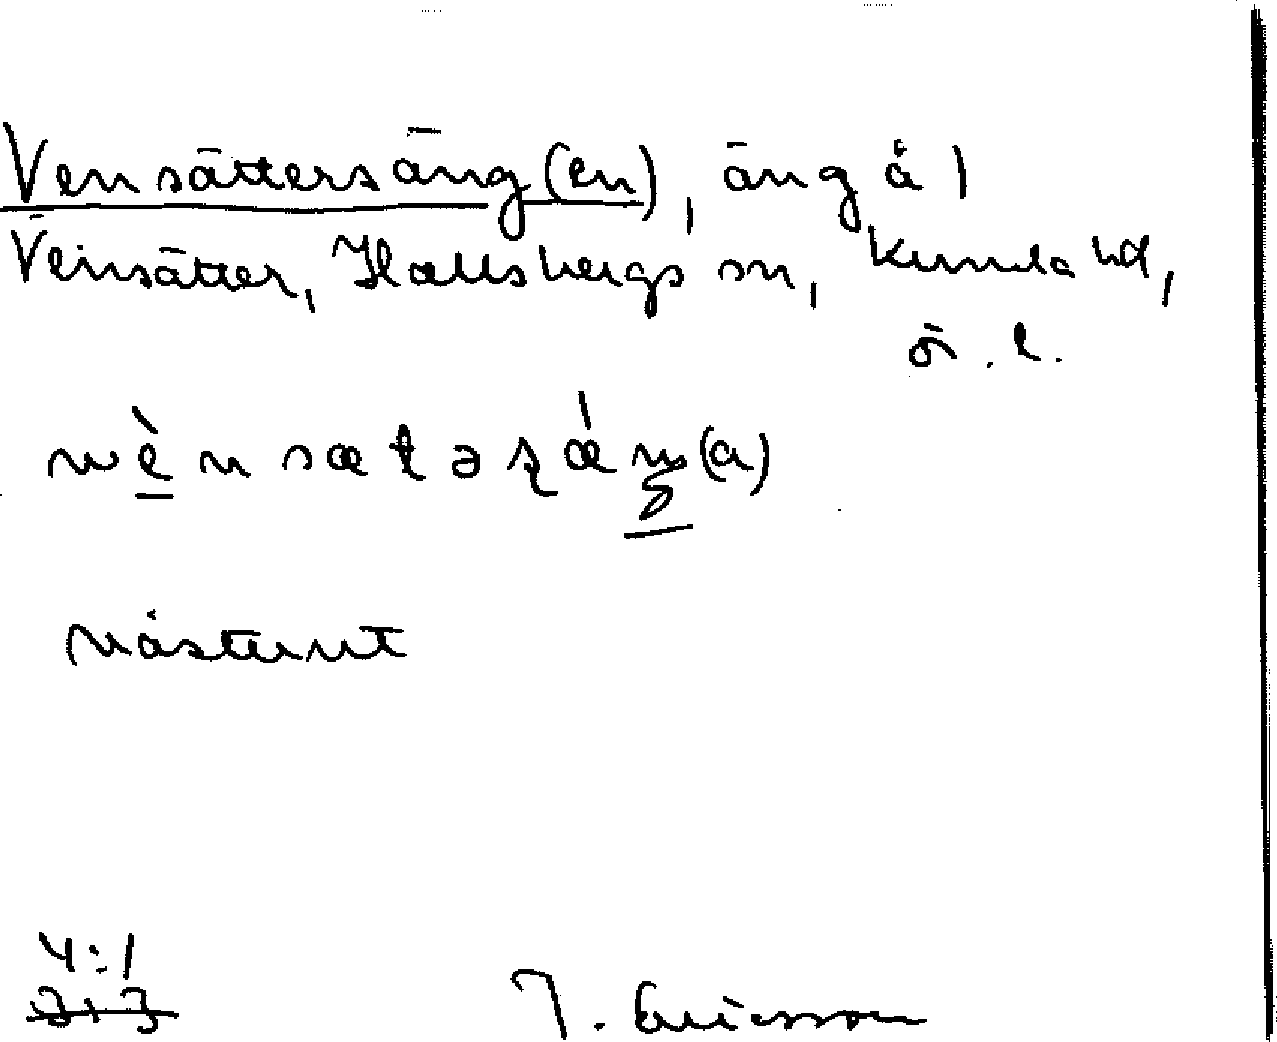 Vensättersäng(en), äng å 1
Vensätter, Hallsbergs sn, Kumla hd,
ö. l.
västerut
4:1
J. Ericsson